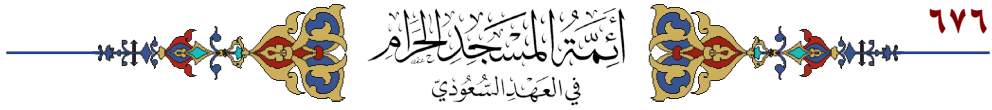 ٦٧٦
أَئِمَّةُ المَسْجِدِ الحَرَامِ
فِي العَهْدِ السُّعُودِيِّ